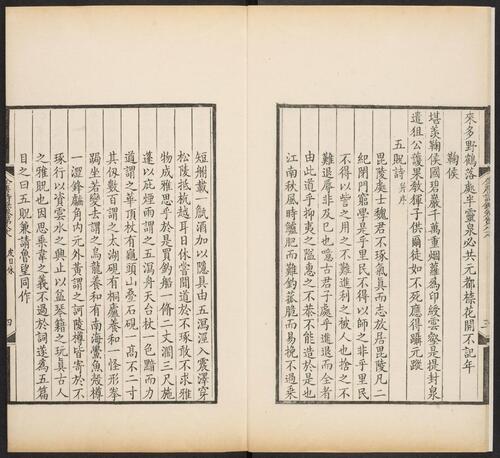 來多野鶴落處半靈泉必共元都柰花開不記年
鞠侯
堪羨鞠侯國碧巖千萬重煙蘿為印綬雲壑是提封泉
遣狙公護果教獼子供爾徒如不死應得躡元蹤
五貺詩并序
毘陵處士魏君不琢氣真而志放居毘陵凡二
紀閉門窮學是乎里民不得以師之非乎里民
不得以訾之用之不難進利之被人也捨之不
難退辱非及已也噫古君子處乎進退而全者
由此道乎抑夷之隘惠之不恭不能造於是也
江南秋風時鱸肥而難釣菰脆而易挽不過乘
短舸載一甔酒加以隱具由五瀉涇入震澤穿
松陵抵杭越耳日休嘗聞道於不琢敢不求雅
物成雅思乎於是買釣船一脩二丈濶三尺施
蓬以庇煙雨謂之五瀉舟天台杖一色黯而力
遒謂之華頂杖有龜頭山疊石硯一高不二寸
其仞數百謂之太湖硯有桐廬養和一怪形拳
跼坐若變去謂之烏龍養和有南海鱟魚殼樽
一澀鋒齾角內元外黃謂之訶陵樽皆寄於不
琢行以資雲水之興止以益琴籍之玩真古人
之雅貺也因思乘韋之義不過於詞遂為五篇
目之曰五貺兼請魯望同作
皮日休
四